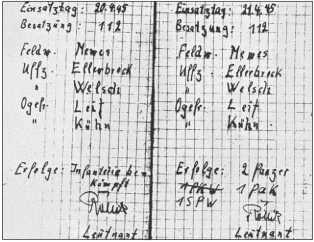 Einsatztag: 20.4.45
Besatzung: 112
Feldw. Nemes
Uffz. Ellerbrock
" Welsch
Ogefr. Leit
" Kühn
Erfolge: Infanterie be
kämpft
Leutnant
Einsatztag: 21.4.45
Besatzung: 112
Feldw. Nemes
Uffz. Ellerbrock
" Welsch
Ogefr. Leit
" Kühn
Erfolge: 2 Panzer
1 PKW 1 Pak
1 SPW
Leutnant